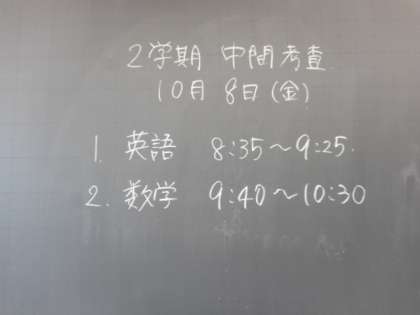 2学期 中間考査
10月 8日(金)
1. 英語 8:35~9:25.
2. 数学 9:40~10:30